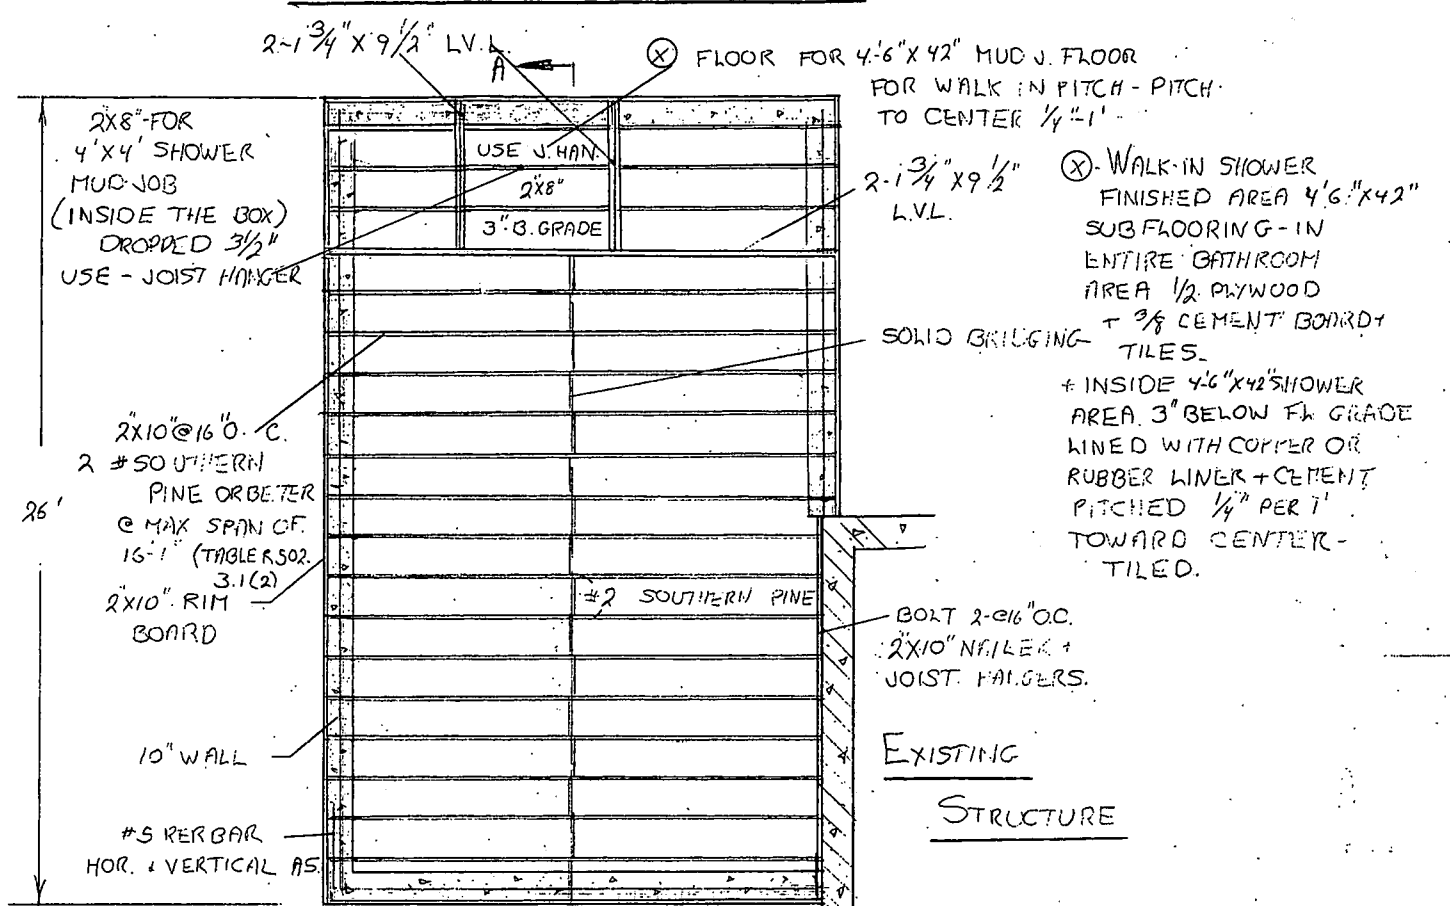 2-1 3/4" X 9 1/2" L.V.L.
A
Ⓧ FLOOR FOR 4'-6" X 42" MUD J. FLOOR
FOR WALK IN PITCH - PITCH
TO CENTER 1/4"-1'
2X8"-FOR
4'X4' SHOWER
MUD JOB
(INSIDE THE BOX)
DROPPED 3 1/2"
USE - JOIST HANGER
USE J. HAN.
2"X8"
3"-B. GRADE
2-1 3/4" X 9 1/2"
L.V.L.
Ⓧ- WALK-IN SHOWER
FINISHED AREA 4'6" X 42"
SUBFLOORING - IN
ENTIRE BATHROOM
AREA 1/2 PLYWOOD
+ 3/8 CEMENT BOARD +
TILES.
+ INSIDE 4-6" X 42" SHOWER
AREA. 3" BELOW FL GRADE
LINED WITH COPPER OR
RUBBER LINER + CEMENT
PITCHED 1/4" PER 1'
TOWARD CENTER-
TILED.
SOLID BRIDGING
2"X10"@16"O.C.
2 # SOUTHERN
PINE OR BETER
@ MAX SPAN OF
16-1" (TABLE R502.
3.1(2)
26'
2"X10" RIM
BOARD
#2 SOUTHERN PINE
BOLT 2-@16"O.C.
2"X10" NAILER +
JOIST HANGERS.
10" WALL
EXISTING
STRUCTURE
#5 RERBAR
HOR. & VERTICAL AS.